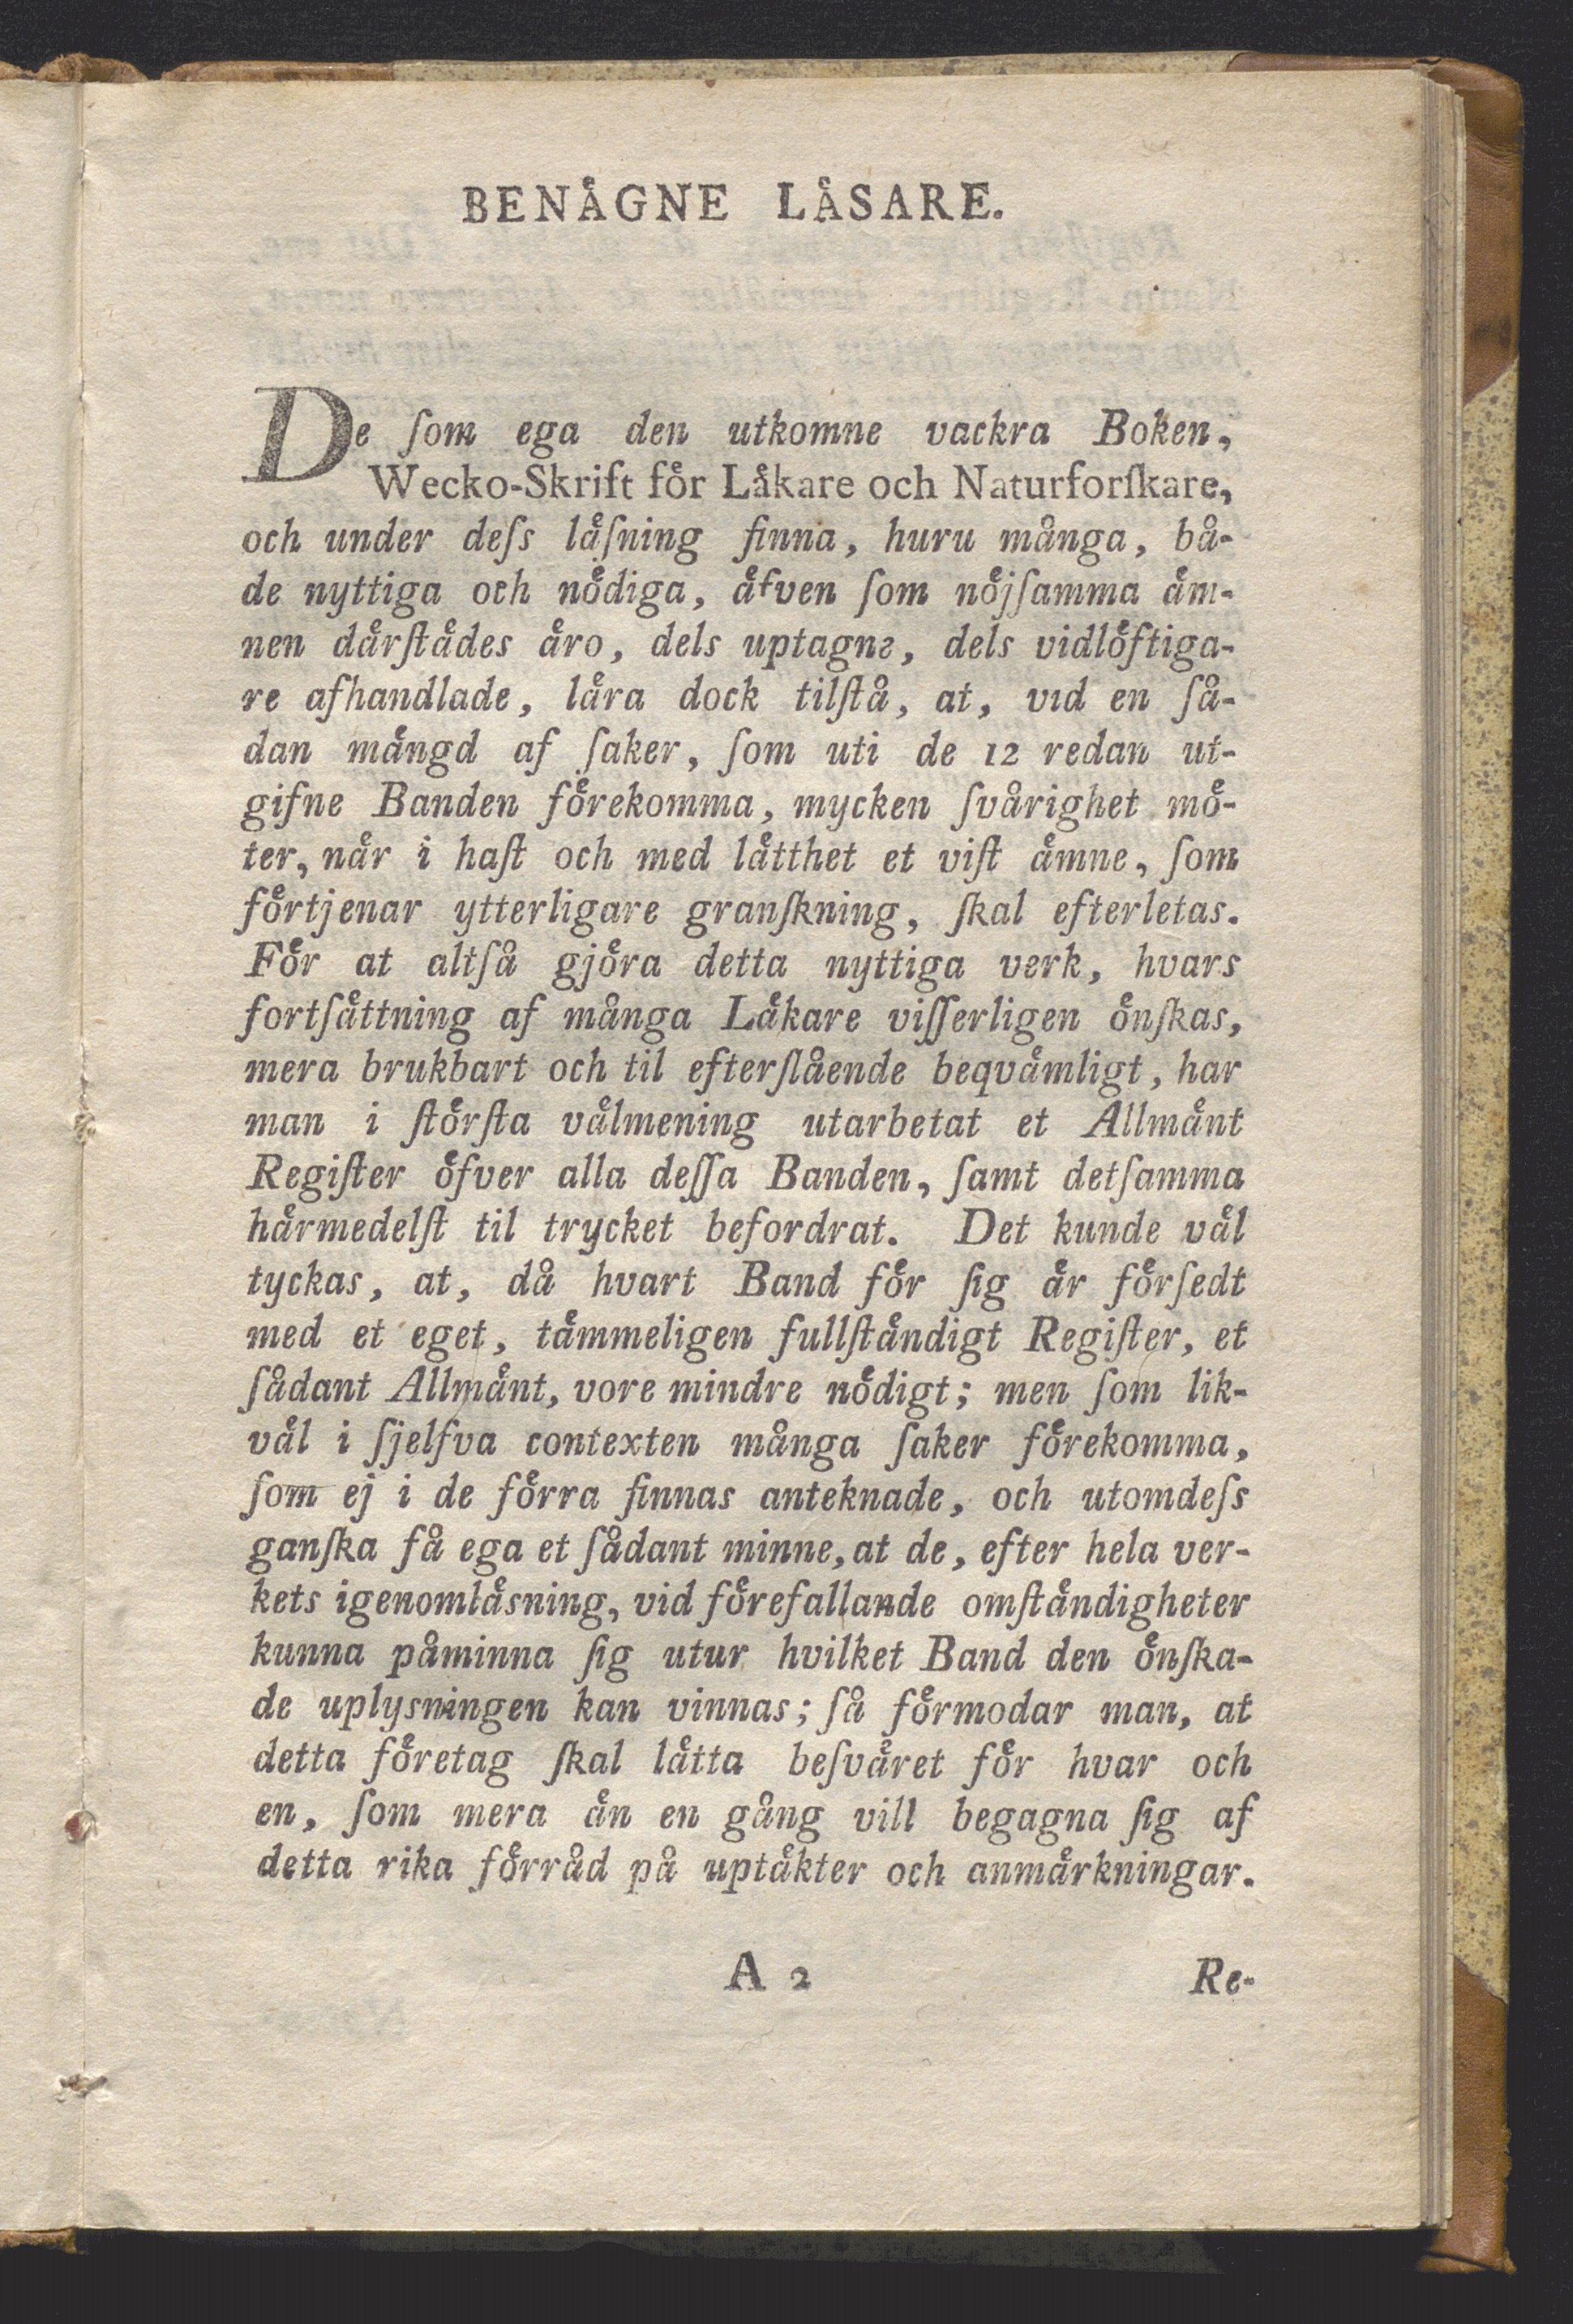 BENÄGNE LÄSARE.
De ſom ega den utkomne vackra Boken,
Wecko-Skrift för Läkare och Naturforſkare,
och under deſs läſning finna, huru många, bå-
de nyttiga och nödiga, äfven ſom nöjſamma äm-
nen därſtädes äro, dels uptagne, dels vidlöftiga-
re afhandlade, lära dock tilſtå, at, vid en ſå-
dan mängd af ſaker, ſom uti de 12 redan ut-
gifne Banden förekomma, mycken ſvårighet mö-
ter, när i haſt och med lätthet et viſt ämne, ſom
förtjenar ytterligare granſkning, ſkal efterletas.
För at altſå gjöra detta nyttiga verk, hvars
fortſättning af många Läkare viſſerligen önſkas,
mera brukbart och til efterſlående beqvämligt, har
man i ſtörſta välmening utarbetat et Allmänt
Regiſter öfver alla deſſa Banden, ſamt detſamma
härmedelſt til trycket befordrat. Det kunde väl
tyckas, at, då hvart Band för ſig är förſedt
med et eget, tämmeligen fullſtändigt Regiſter, et
ſådant Allmänt, vore mindre nödigt; men ſom lik-
väl i ſjelfva contexten många ſaker förekomma,
ſom ej i de förra finnas anteknade, och utomdeſs
ganſka få ega et ſådant minne, at de, efter hela ver-
kets igenomläsning, vid förefallande omſtändigheter
kunna påminna ſig utur hvilket Band den önſka-
de uplysningen kan vinnas; ſå förmodar man, at
detta företag ſkal lätta beſväret för hvar och
en, ſom mera än en gång vill begagna ſig af
detta rika förråd på uptäkter och anmärkningar.
A 2 Re-